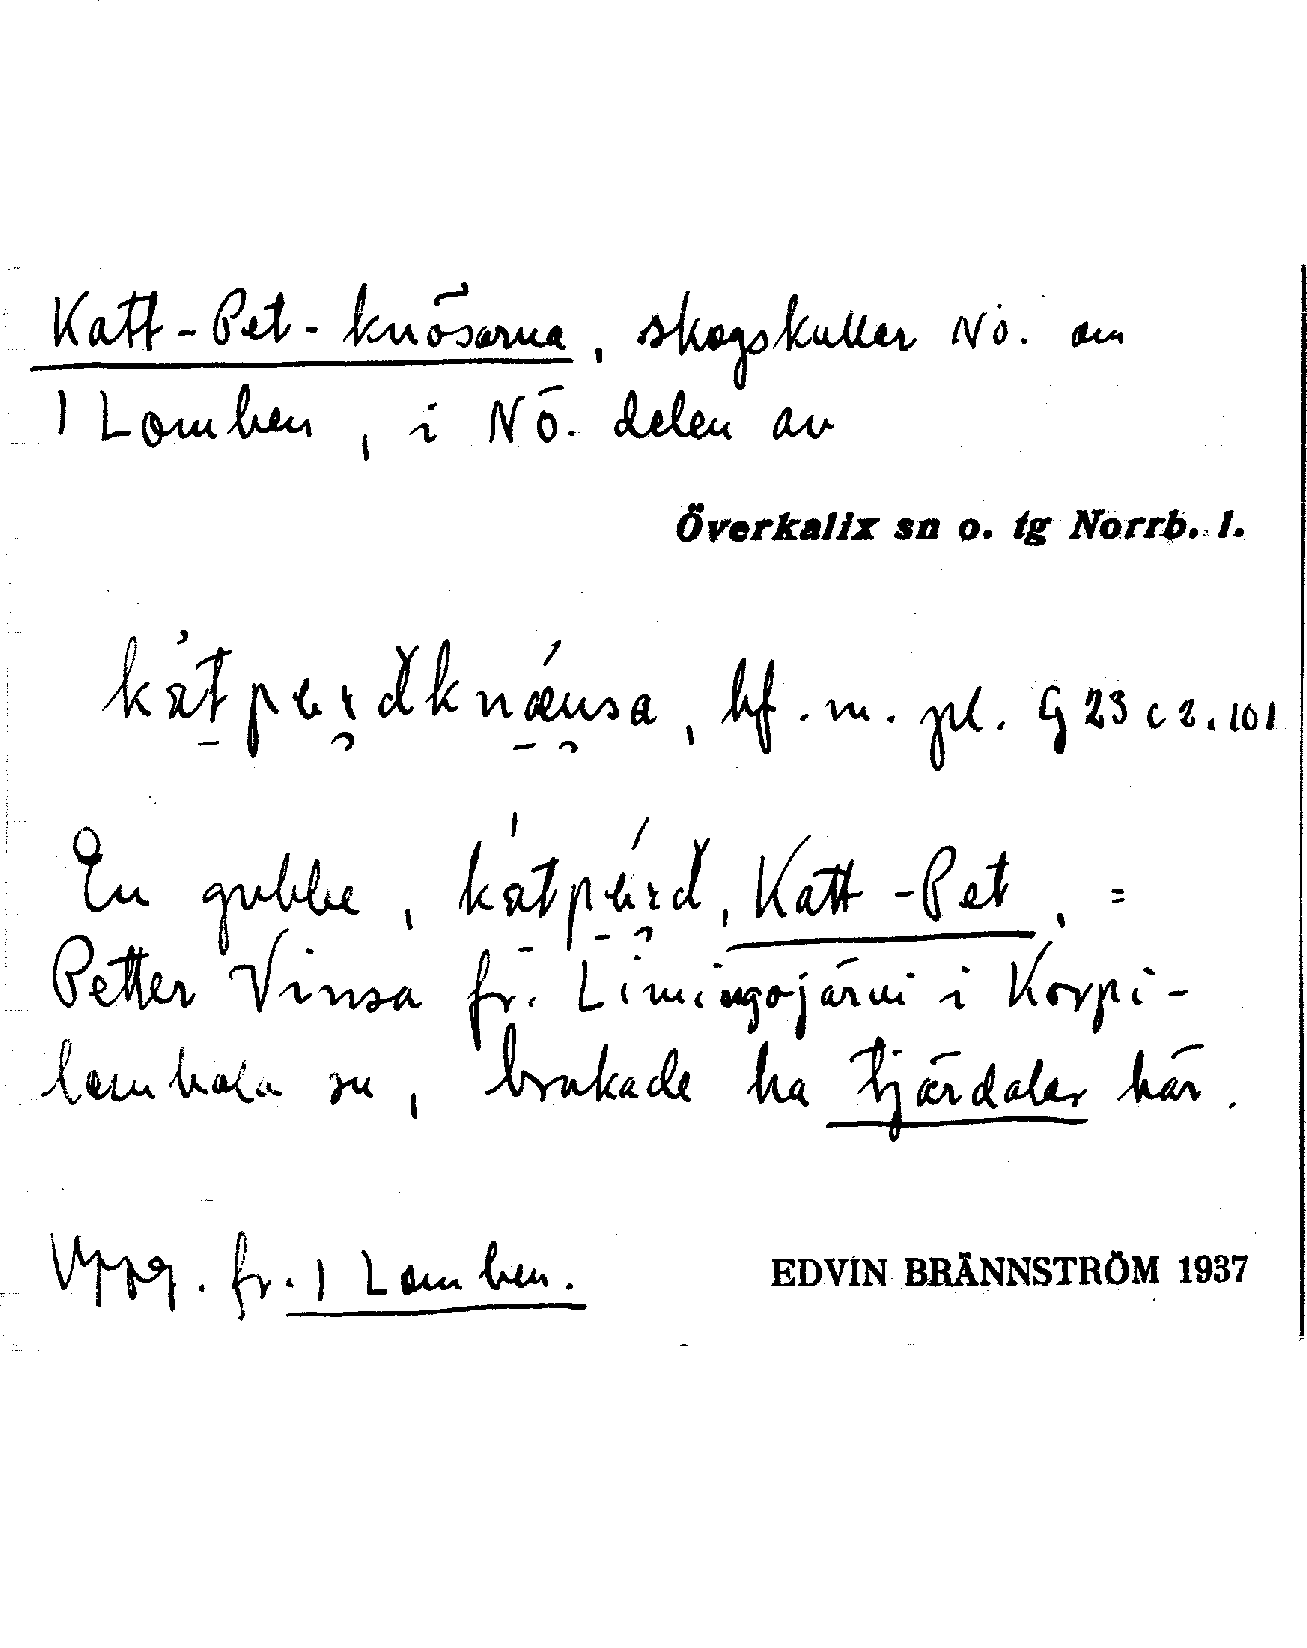 Katt-Pet-knösarna, skogskullar NÖ. om
1 Lomben, i NÖ. delen av
Överkalix sn o. tg Norrb. l.
bf. m. pl. G 23 c 2. 101
En gubbe, Katt-Pet, =
Petter Vinsa fr. Limingojärvi i Korpi-
lombolo sn, brukade ha tjärdalar här.
Uppg. fr. 1 Lomben.
EDVIN BRÄNNSTRÖM 1937